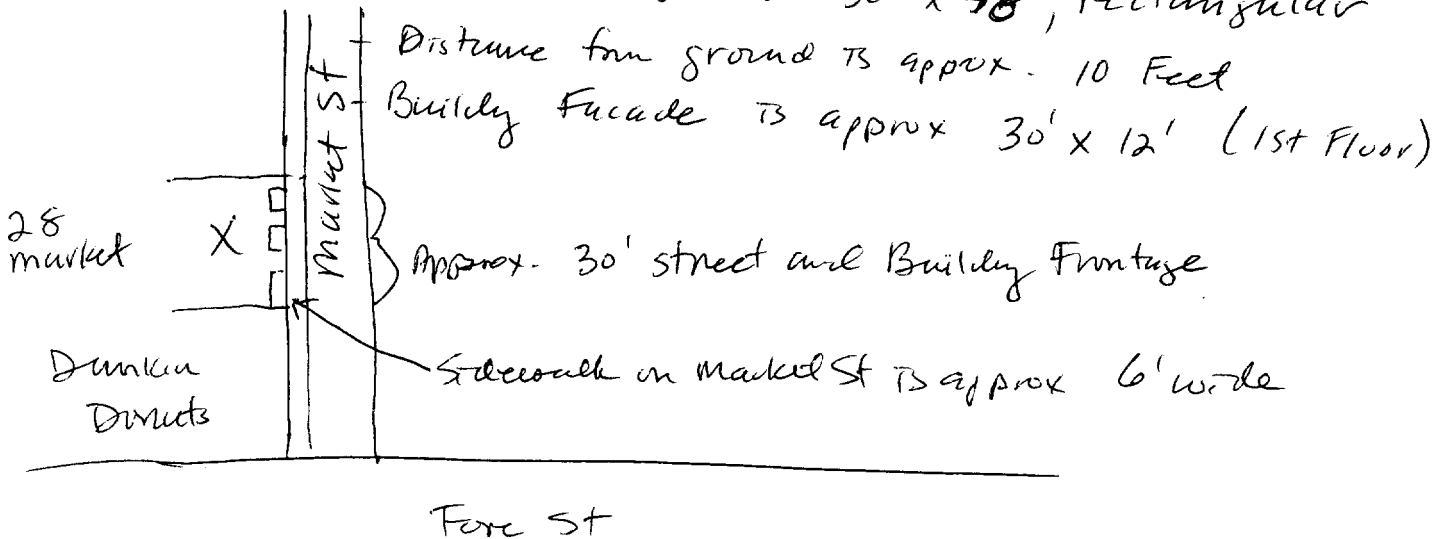 x 38", rectangular
Distance from ground is approx. 10 Feet
Building Facade is approx 30' x 12' (1st Floor)
Market St
28
market
X
Approx. 30' street and Building Frontage
Sidewalk on Market St is approx 6' wide
Dunkin
Donuts
Fore St